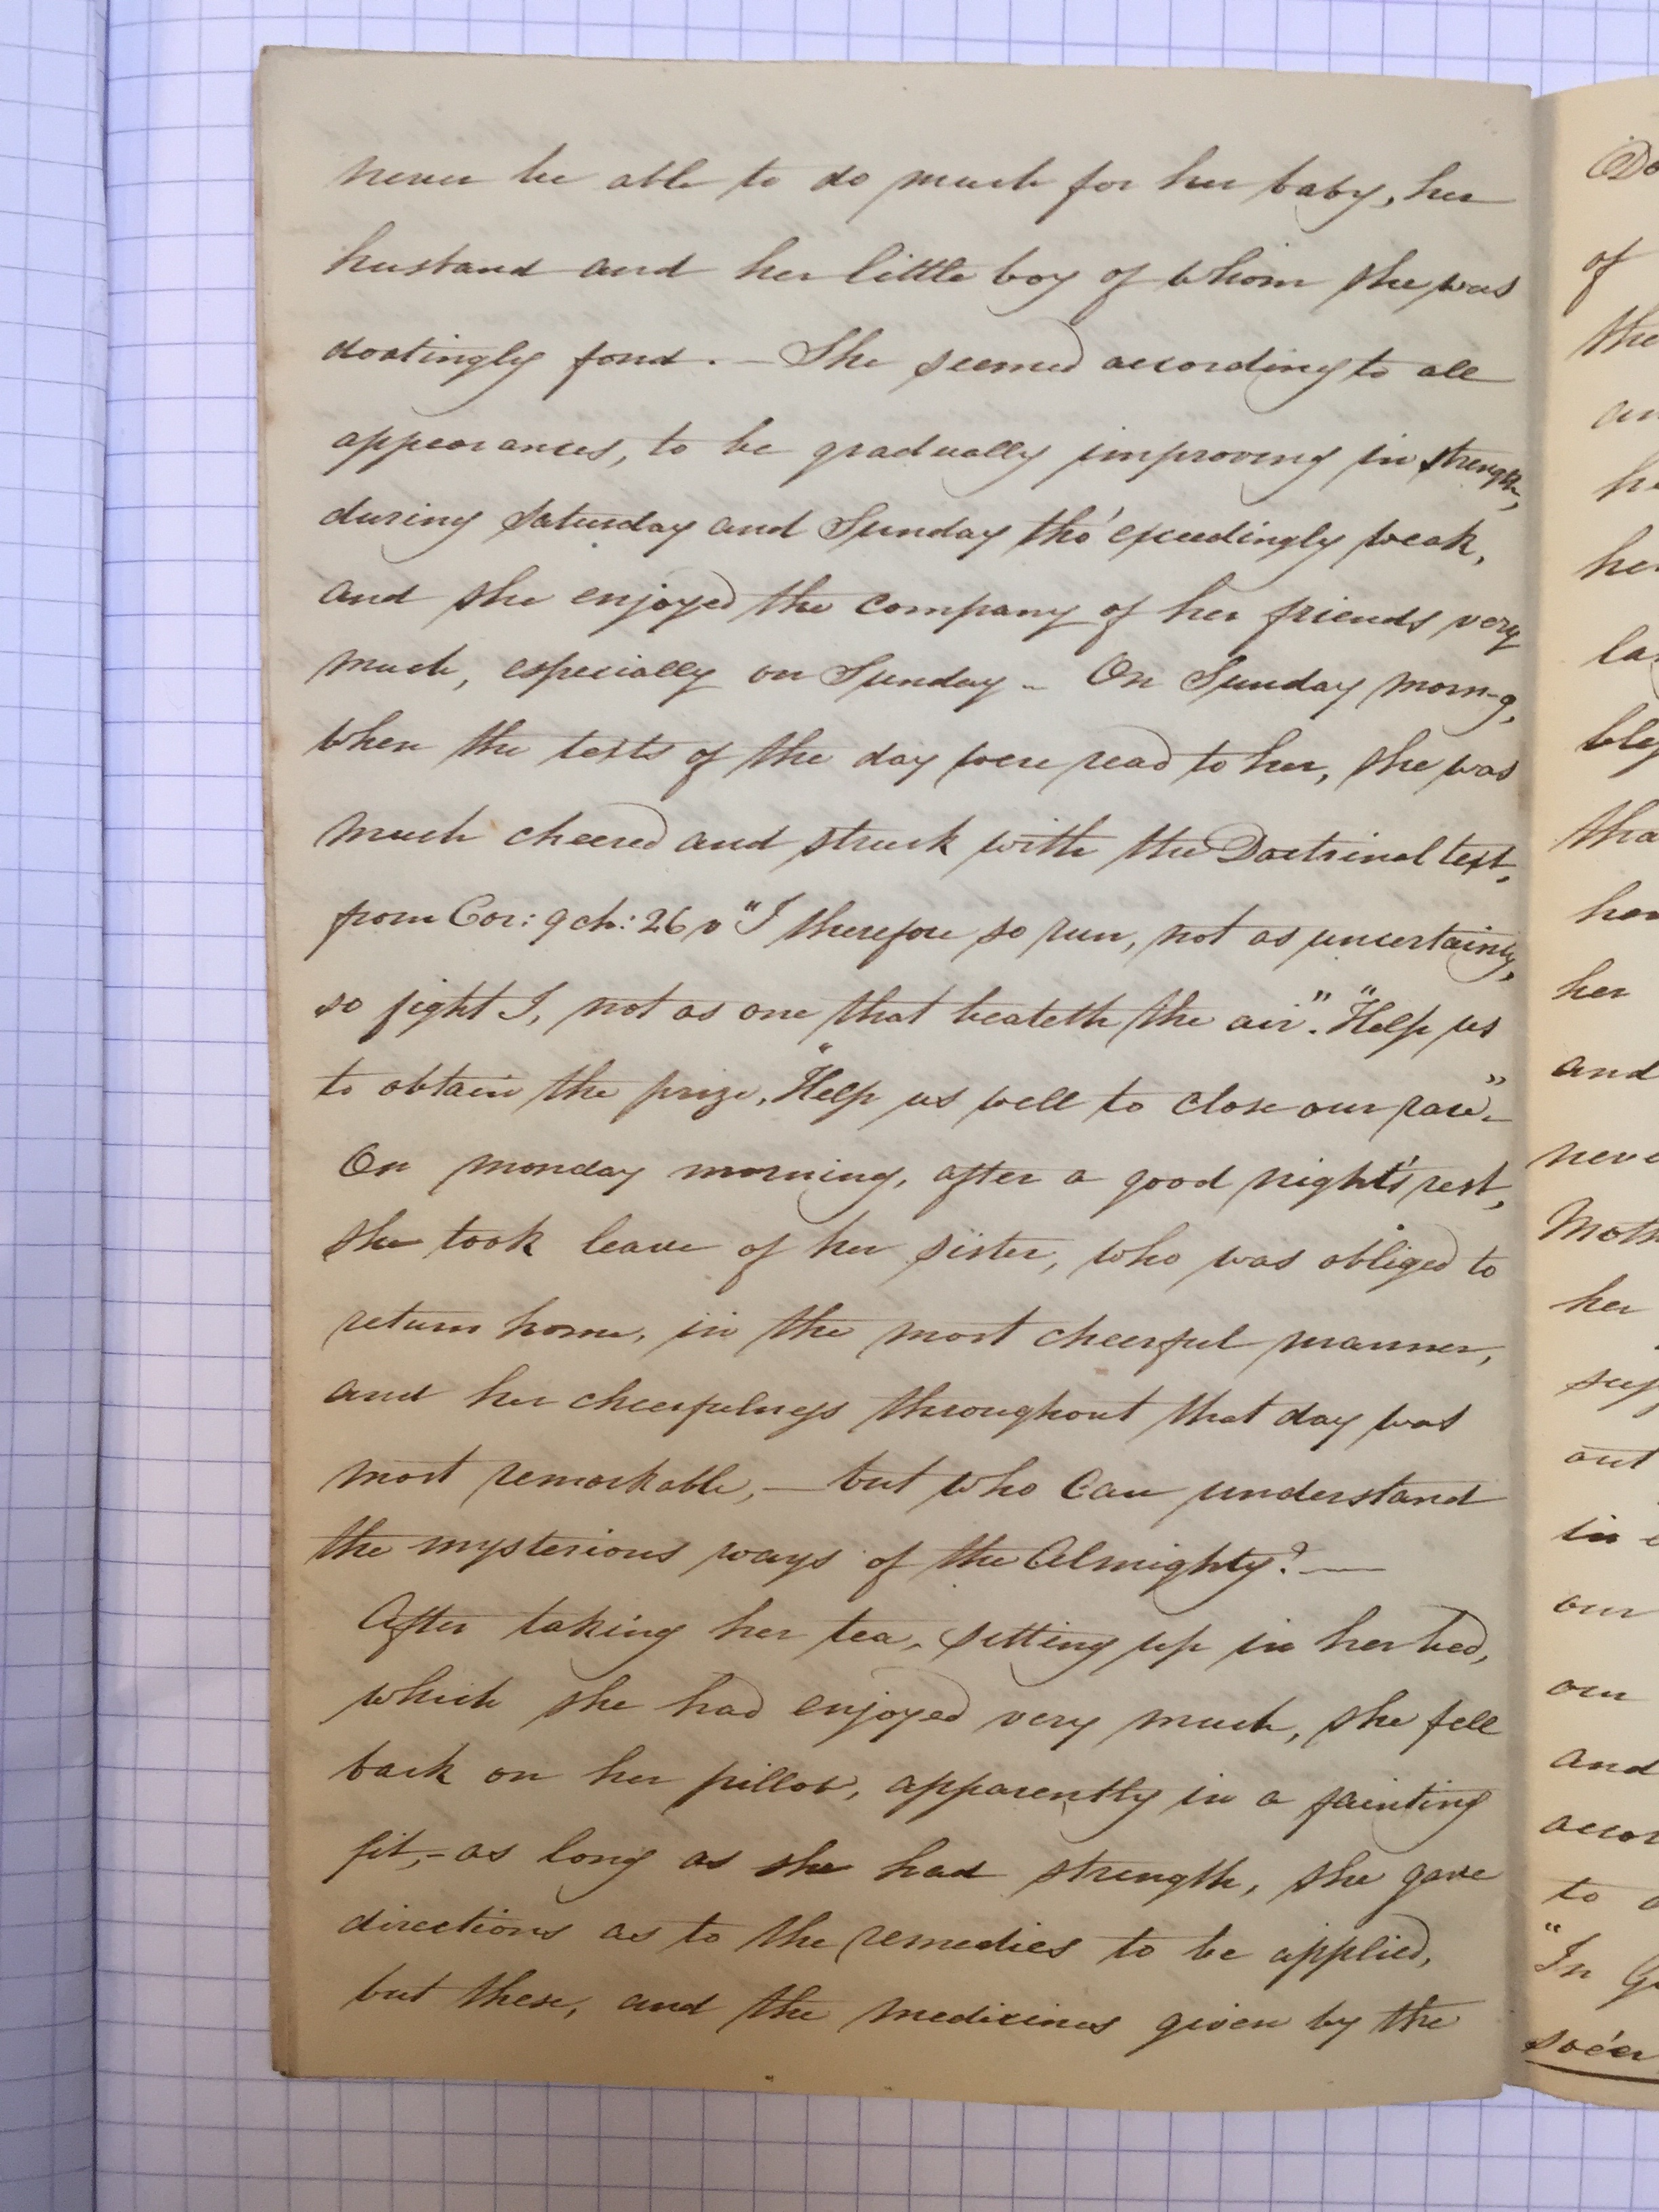 never be able to do much for her baby, her
husband and her little boy of whom she was
doatingly fond. — She seemed according to all
appearances, to be gradually improving in strength,
during Saturday and Sunday tho' exceedingly weak,
and she enjoyed the company of her friends very
much, especially on Sunday - On Sunday morn-g,
when the texts of the day were read to her, she was
much cheered and struck with the Doctrinal text,
from Cor: 9 ch: 26 v "I therefore so run, not as uncertainly,
so fight I, not as one that beateth the air". "Help us
to obtain the prize, "Help us well to close our race". -
On monday morning, after a good night's rest,
she took leave of her sister, who was obliged to
return home, in the most cheerful manner,
and her cheerfulness throughout that day was
most remarkable, — but who can understand
the mysterious ways of the Almighty? —
After taking her tea, sitting up in her bed,
which she had enjoyed very much, she fell
back on her pillow, apparently in a fainting
fit, - as long as she had strength, she gave
directions as to the remedies to be applied,
but these, and the medicines given by the
Do
of
the
an
he
her
la
bles
tha
her
and
neve
Moth
her
sup
out
in
our
our
and
accor
to
"In